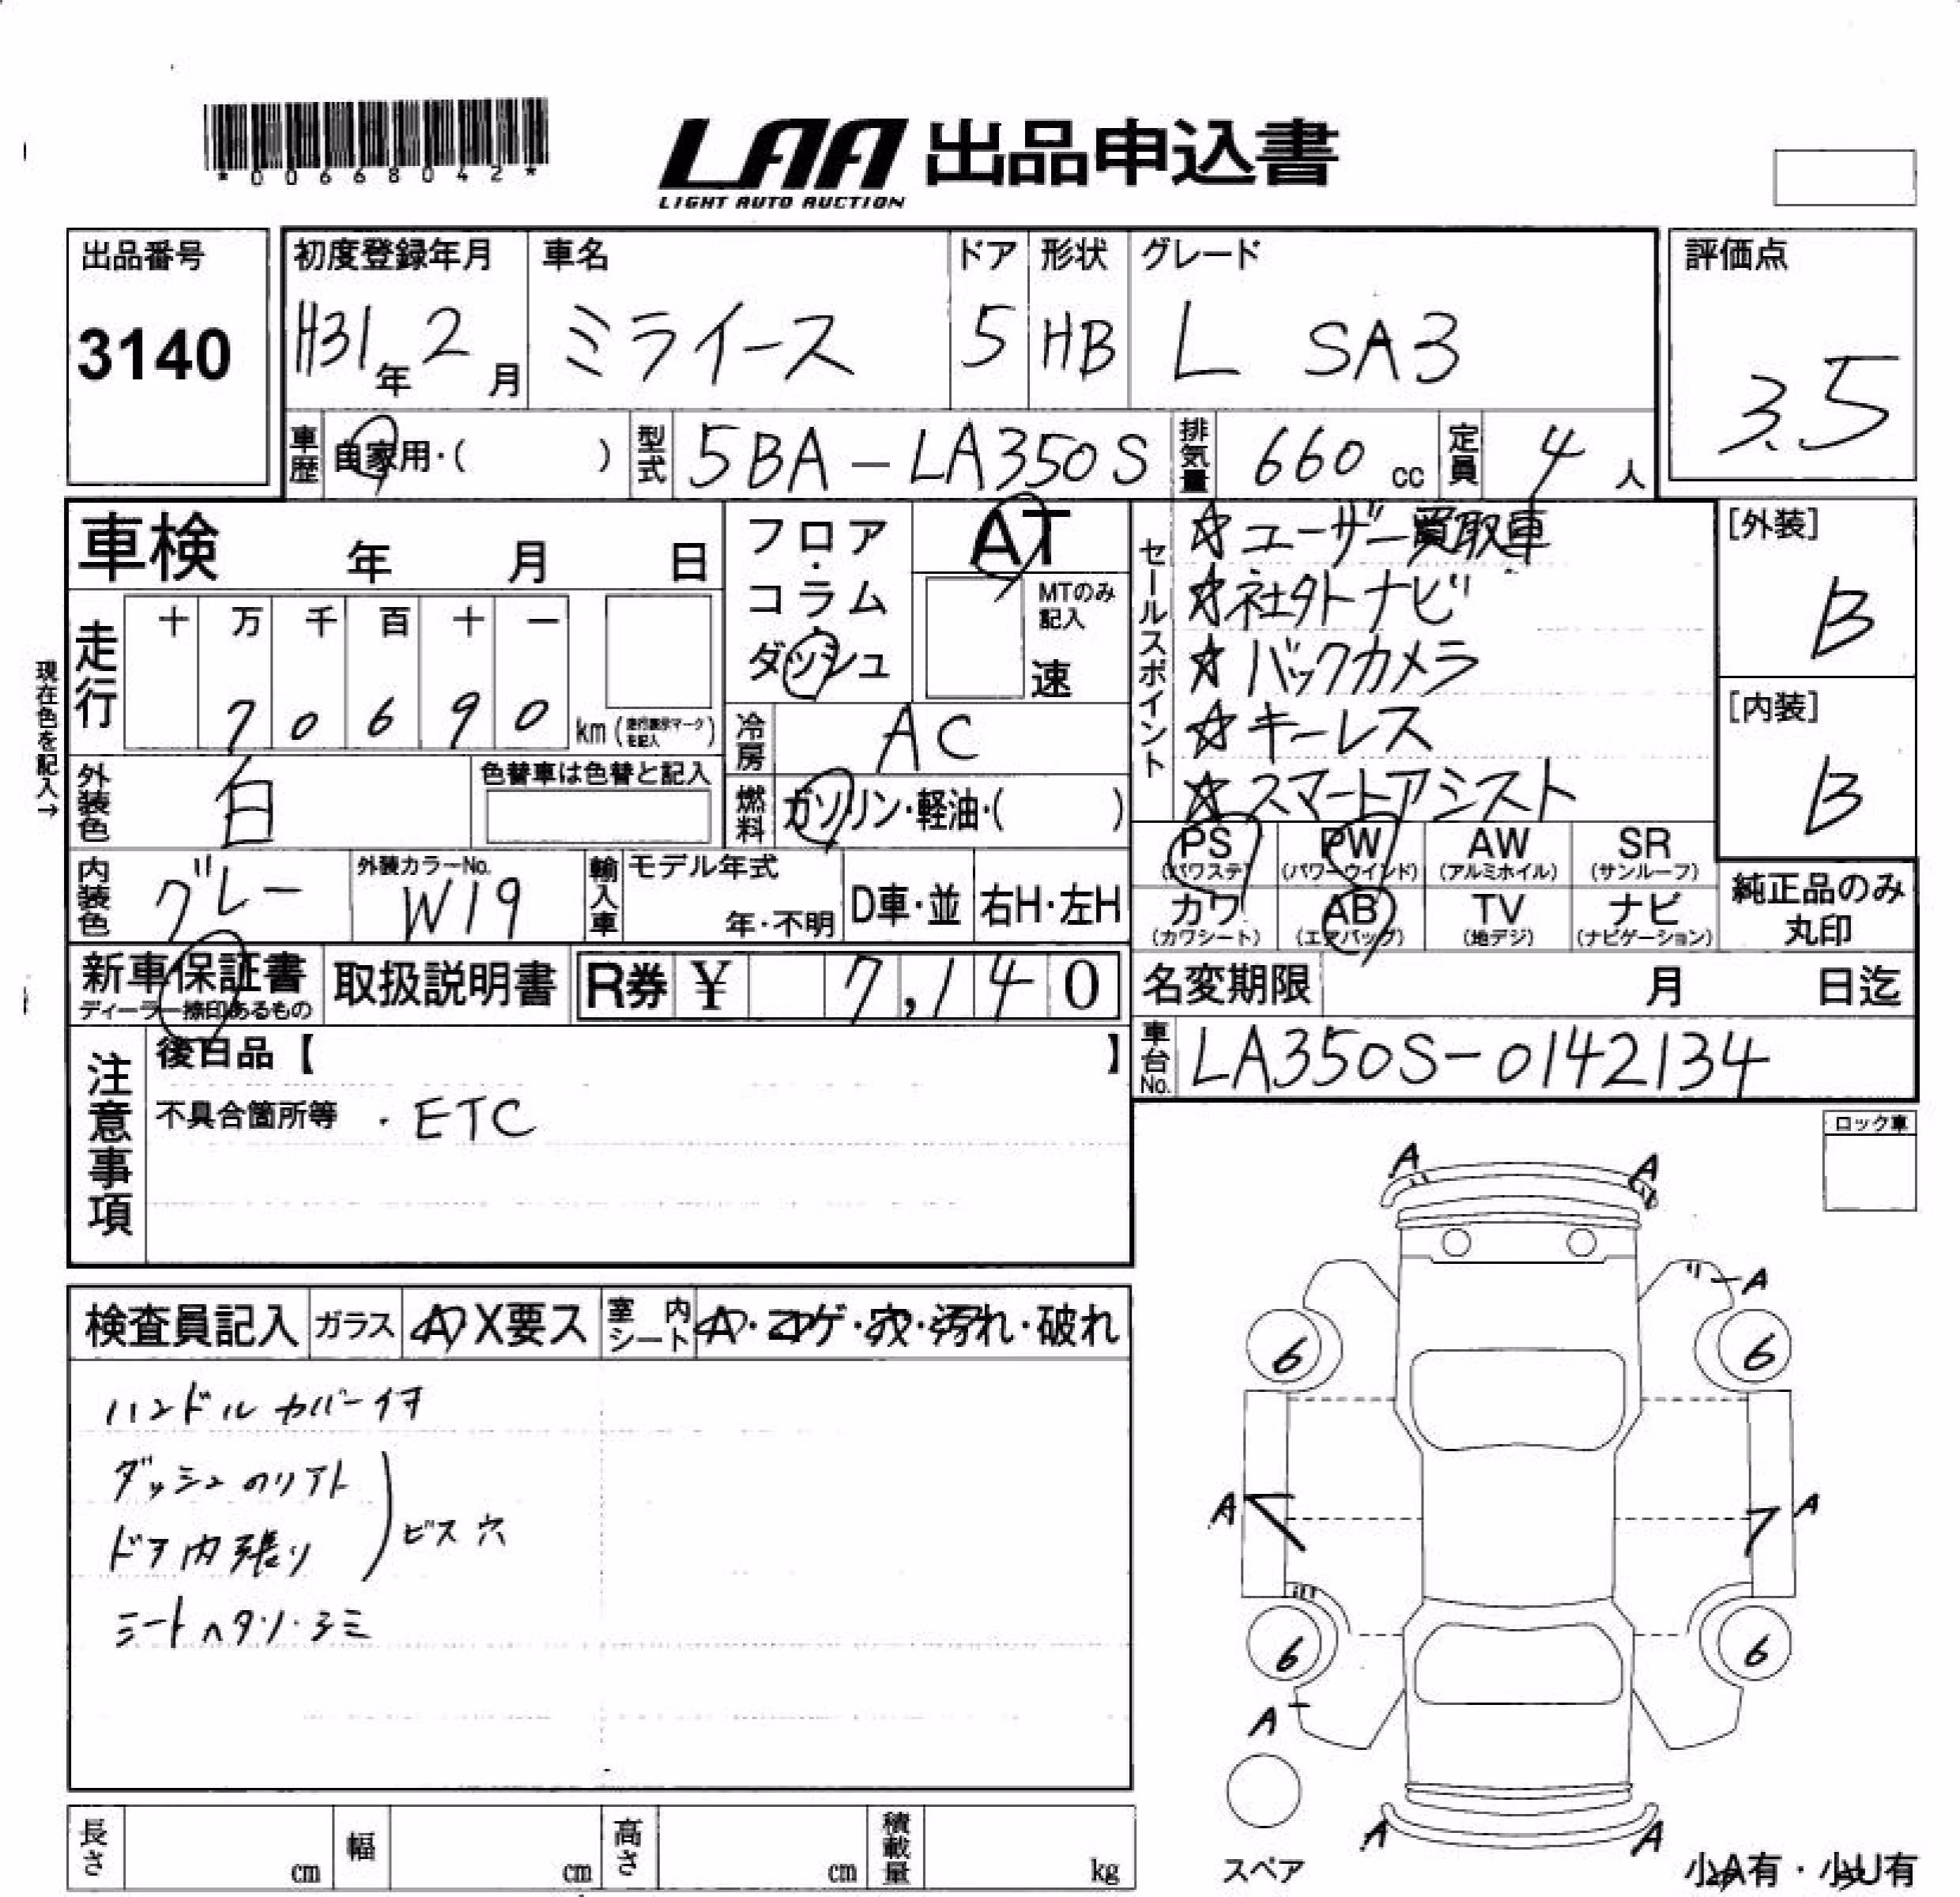 *00668042*
LAA 出品申込書
LIGHT AUTO AUCTION
出品番号
3140
初度登録年月
H31年 2月
車名
ミライース
ドア
5
形状
HB
グレード
L SA3
評価点
3.5
車歴 自家用・( )
型式 5BA-LA350S
排気量 660 cc
定員 4人
車検 年 月 日
現在色を記入→
走行 十 万 千 百 十 一
7 0 6 9 0 km (走行表示マークを記入)
フロア・コラム・ダッシュ
AT
MTのみ記入
速
冷房 AC
燃料 ガソリン・軽油・( )
外装色 白
色替車は色替と記入
内装色 グレー
外装カラーNo.
W19
輸入車 モデル年式
年・不明
D車・並
右H・左H
セールスポイント
☆ユーザー買取車
☆社外ナビ
☆バックカメラ
☆キーレス
☆スマートアシスト
[外装]
B
[内装]
B
PS (パワステ)
PW (パワーウインド)
AW (アルミホイル)
SR (サンルーフ)
カワ (カワシート)
AB (エアバッグ)
TV (地デジ)
ナビ (ナビゲーション)
純正品のみ丸印
新車保証書
ディーラー捺印あるもの
取扱説明書
R券 ¥ 7,140
名変期限 月 日迄
車台No. LA350S-0142134
注意事項
後日品【 】
不具合箇所等 ・ETC
ロック車
検査員記入
ガラス A・X要ス
室内シート A・コゲ・穴・汚れ・破れ
ハンドルカバー付
ダッシュのリアト
ドア内張り
ビス穴
シートヘタリ・シミ
A A
A
6 6
A A
6 6
A
A A
スペア
小A有・小U有
長さ cm
幅 cm
高さ cm
積載量 kg